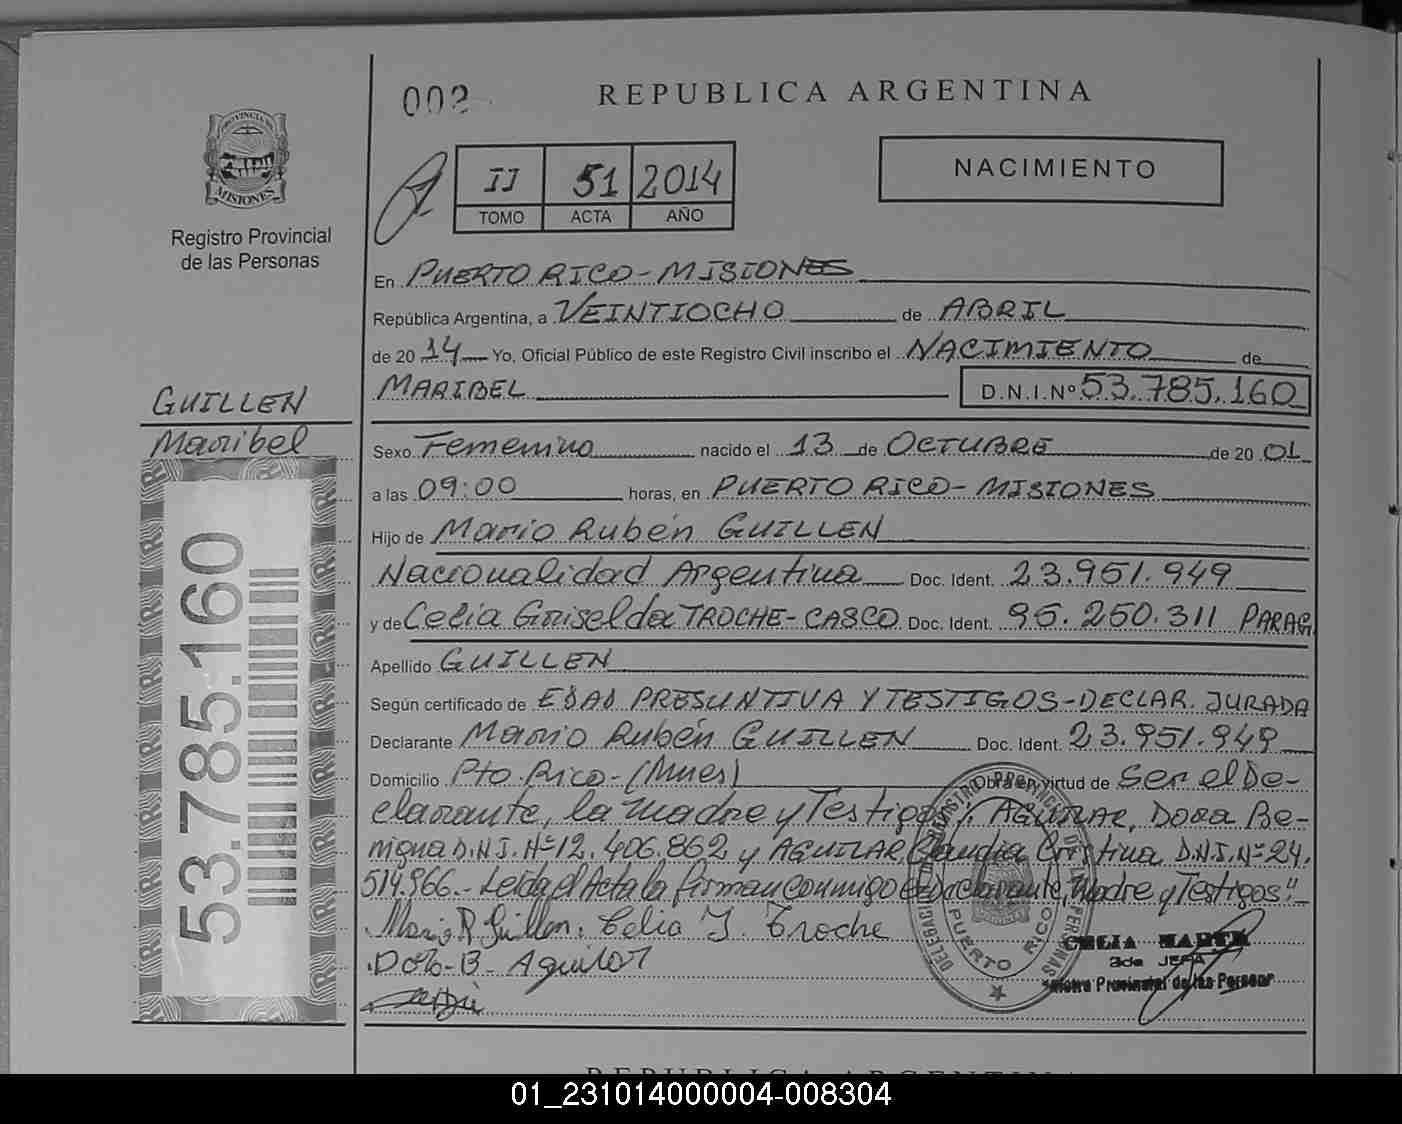 002
REPUBLICA ARGENTINA
PROVINCIA DE
MISIONES
Registro Provincial
de las Personas
II 51 2014
TOMO ACTA AÑO
NACIMIENTO
En PUERTO RICO - MISIONES
República Argentina, a VEINTIOCHO de ABRIL
de 2014 Yo, Oficial Público de este Registro Civil inscribo el NACIMIENTO de
MARIBEL D.N.I. Nº 53.785.160
GUILLEN
Maribel
53.785.160
Sexo Femenino nacido el 13 de OCTUBRE de 2001
a las 09:00 horas, en PUERTO RICO - MISIONES
Hijo de Mario Rubén GUILLEN
Nacionalidad Argentina Doc. Ident. 23.951.949
y de Celia Griselda TROCHE-CASCO Doc. Ident. 95.250.311 PARAG
Apellido GUILLEN
Según certificado de EDAD PRESUNTIVA Y TESTIGOS-DECLAR. JURADA
Declarante Mario Rubén GUILLEN Doc. Ident. 23.951.949
Domicilio Pto. Rico-(Mnes) Obra en virtud de Ser el De-
clarante, la madre y Testigos: AGUILAR, Dora Be-
nigna D.N.I. Nº 12.406.862 y AGUILAR Claudia Cristina D.N.I. Nº 24.
514.966.- Leída el Acta la firman conmigo el Declarante, Madre y Testigos"-
Mario R Guillen. Celia Troche
Aguilar
PUERTO RICO
CELIA
JEFA
de las Person
REPUBLICA ARGENTINA
01_231014000004-008304